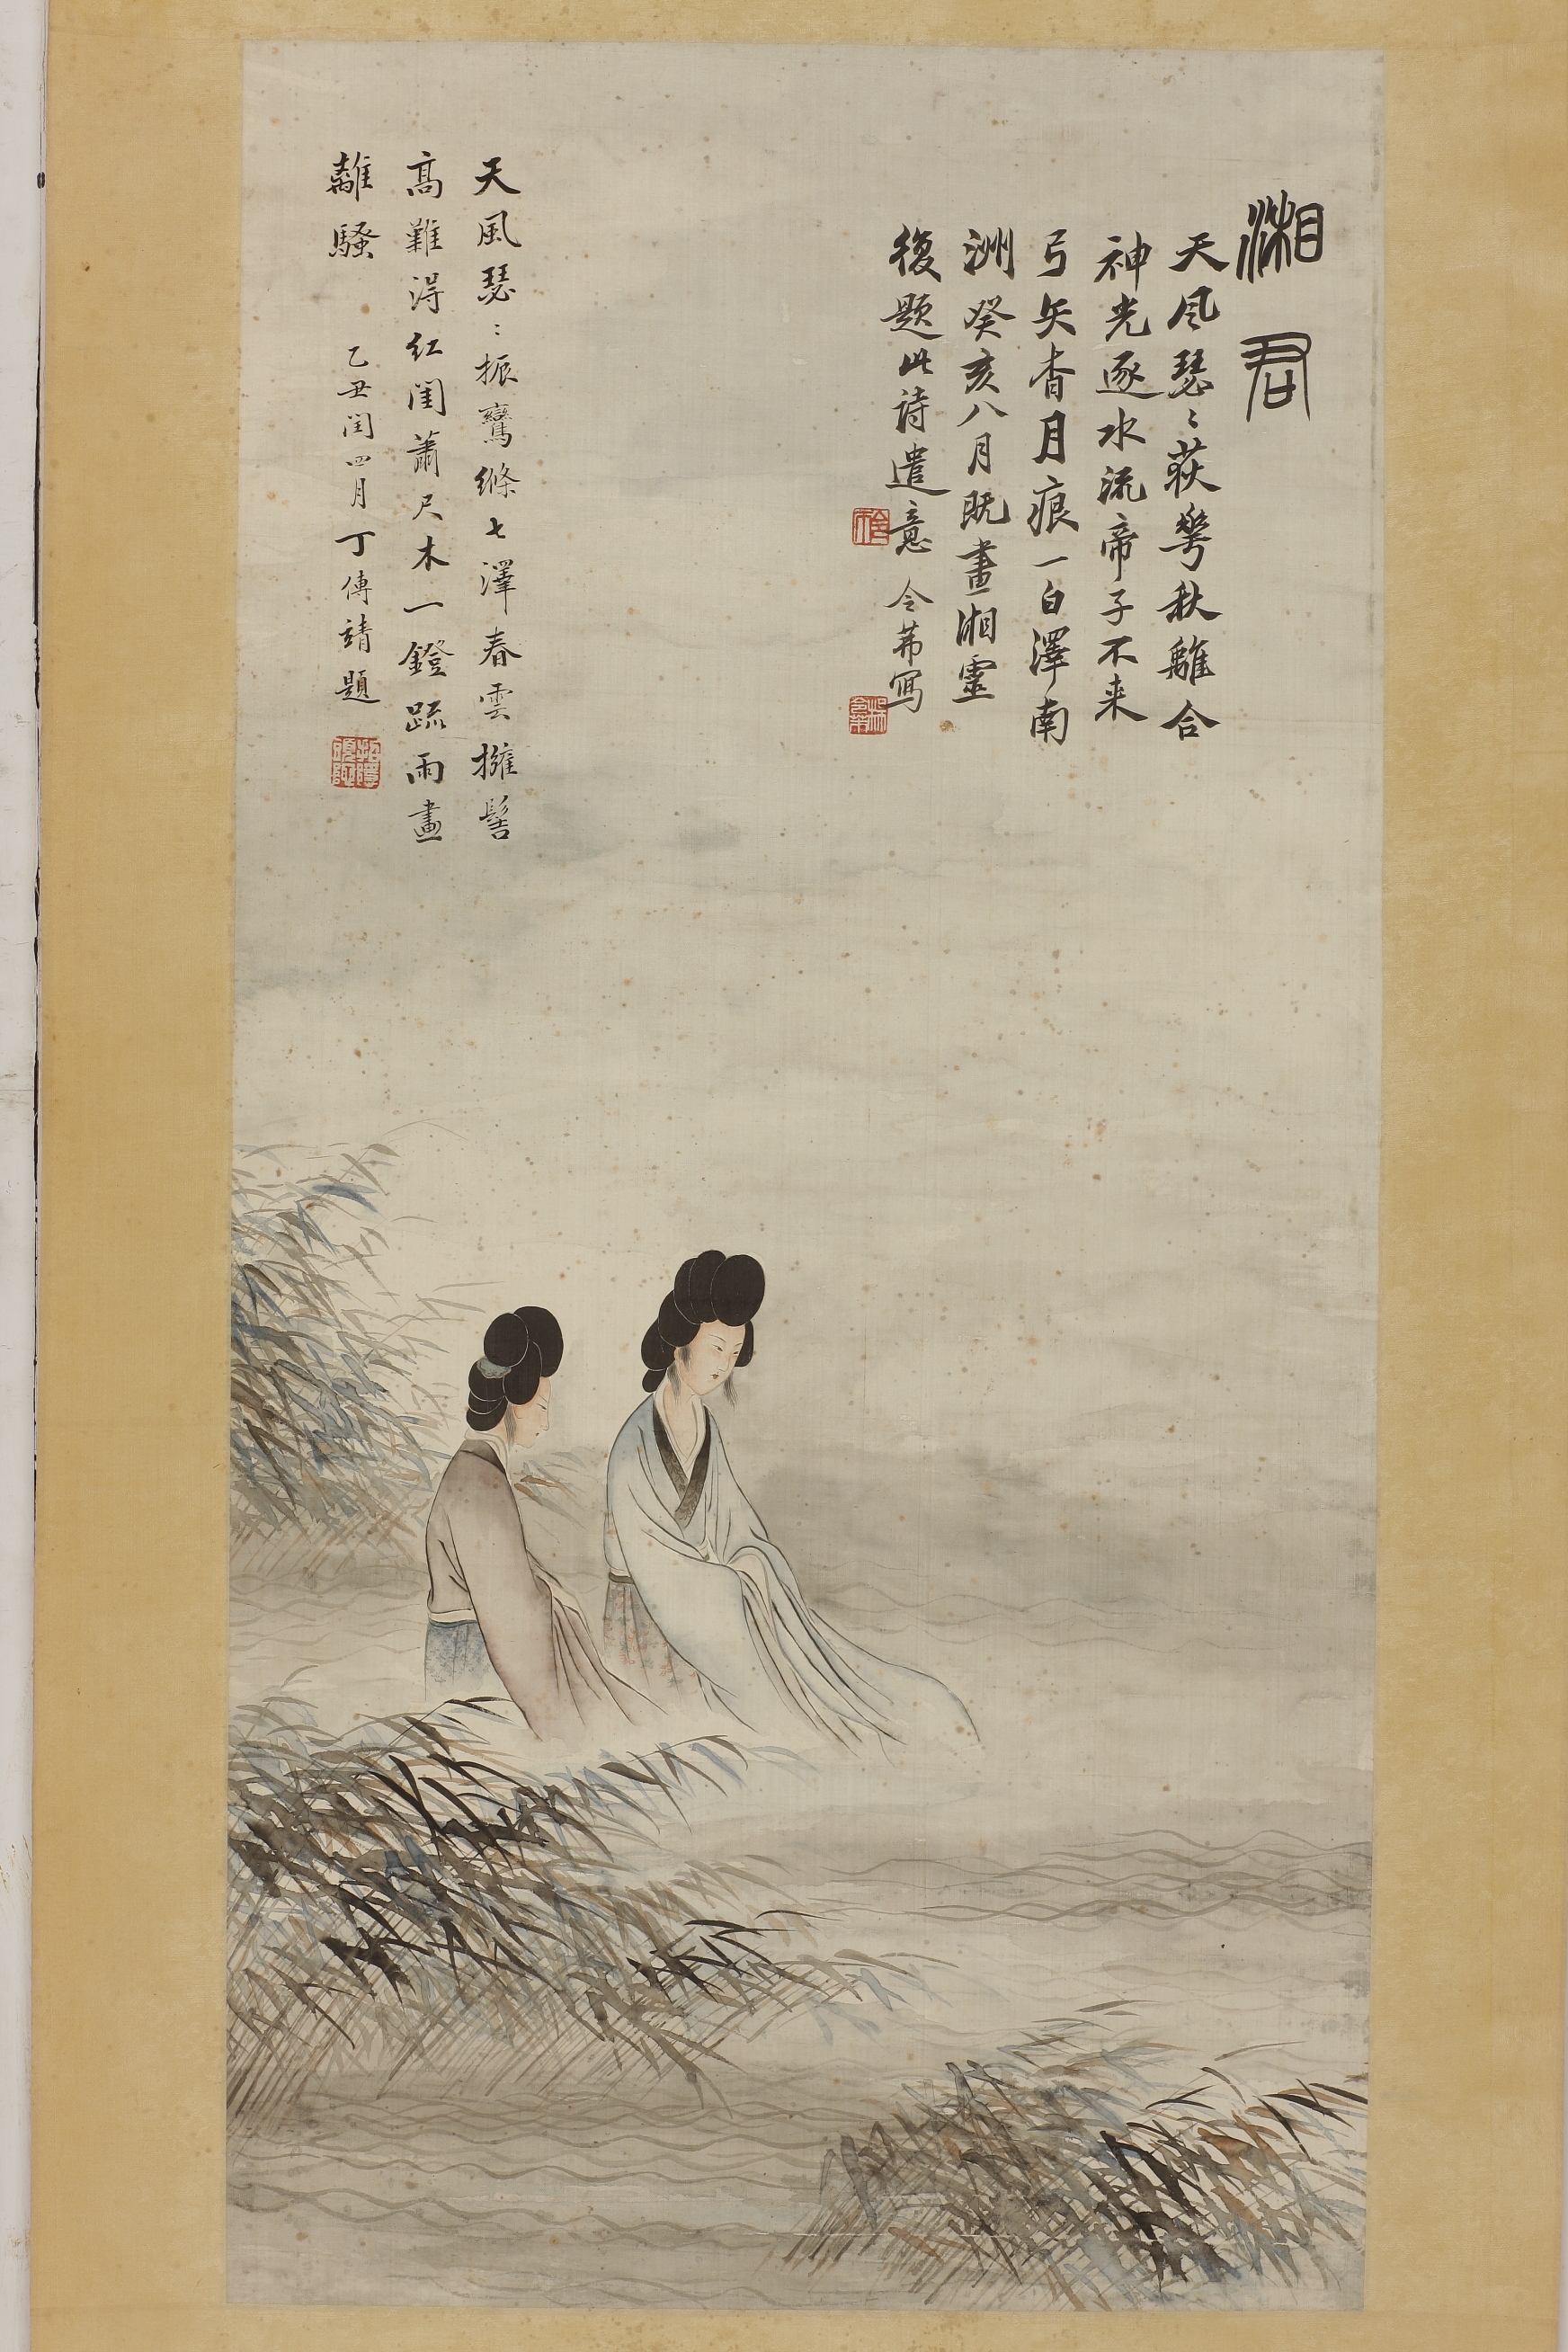 湘君
天風瑟〻荻華秋離合
神光逐水流帝子不来
弓矢杳月痕一白澤南
洲癸亥八月既畫湘靈
復題此詩遣意 令茀寫
天風瑟〻振鸞絛七澤春雲擁髻
高難得紅閨蕭尺木一鐙疏雨畫
離騷 乙丑閏四月丁傳靖題